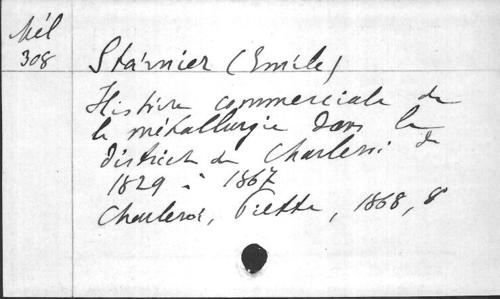 Mél
308
Stainier (Emile)
Histoire commerciale de
la métallurgie dans le
district de Charleroi de
1829 à 1867
Charleroi, Piette, 1868, 8°